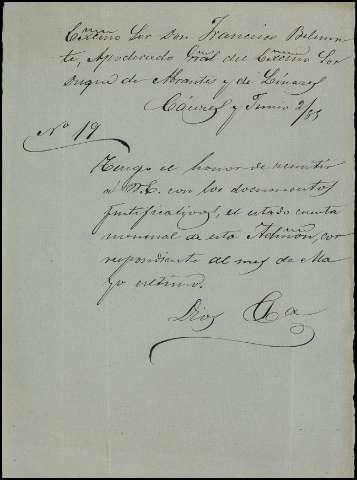 Excmo Sor Don Francisco Belmon-
te, Apoderado Gral del Excmo Sor
Duque de Abrantes y de Linares
Cáceres y Junio 2/85
No 19
Tengo el honor de remitir
á V.E. con los documentos
justificativos, el estado cuenta
mensual de esta Admón, cor
respondiente al mes de Ma
yo último.
Dios &a